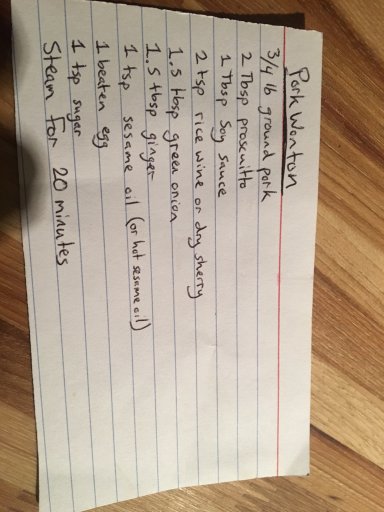 Pork Wonton
3/4 lb ground pork
2 Tbsp proscuitto
1 Tbsp Soy sauce
2 tsp rice wine or dry sherry
1.5 tbsp green onion
1.5 tbsp ginger
1 tsp sesame oil (or hot sesame oil)
1 beaten egg
1 tsp sugar
Steam for 20 minutes